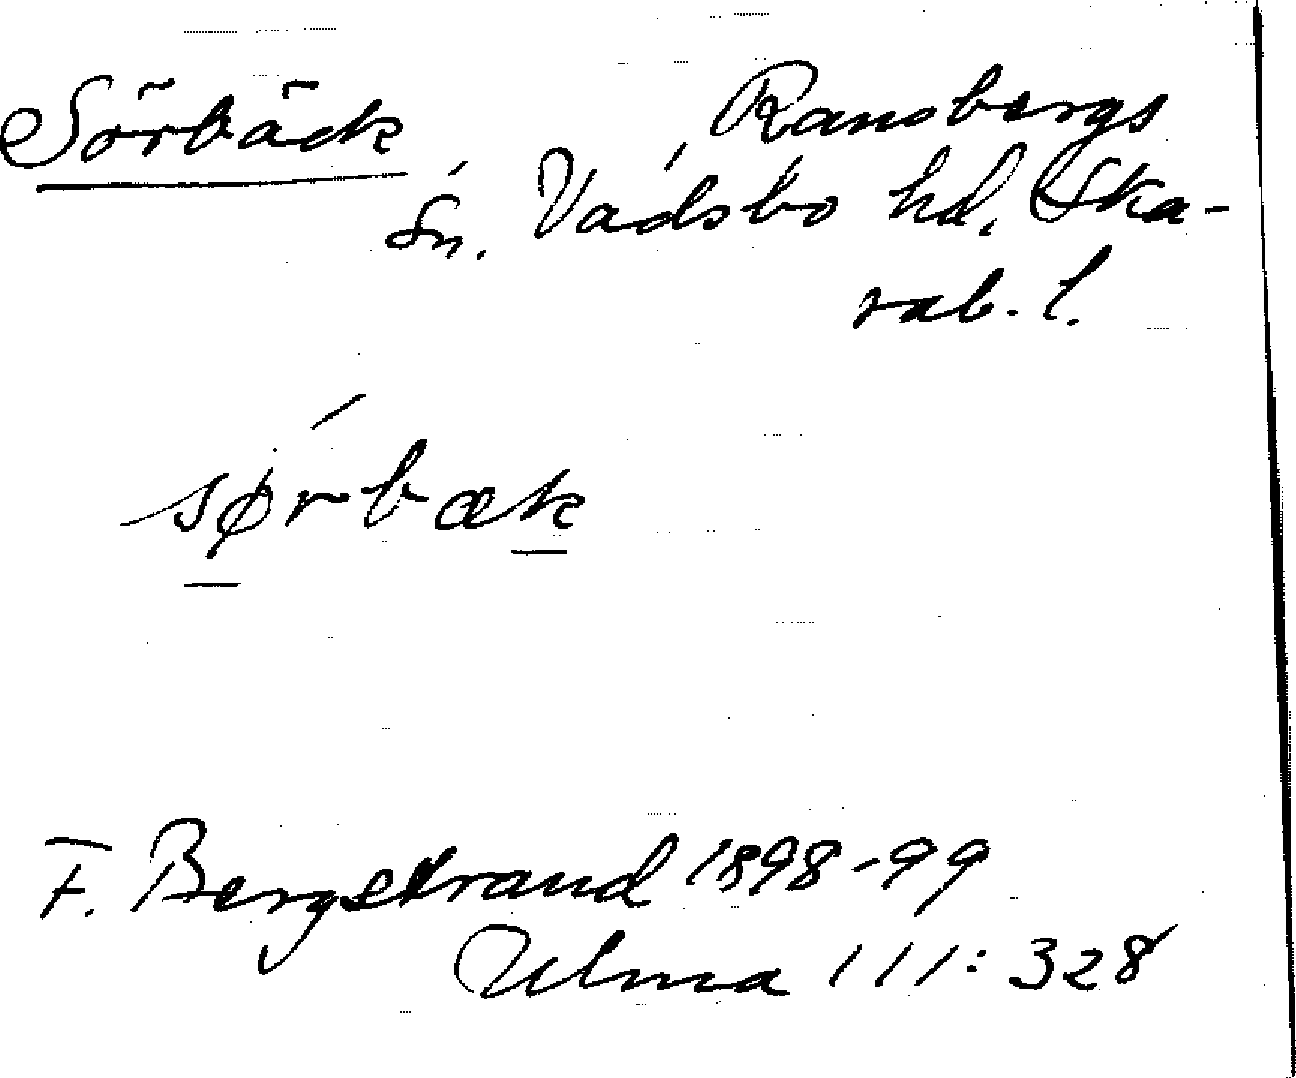 Sörbäck
Ransbergs
Sn. Vadsbo hd. Ska-
rab. l.
sørbæk
F. Bergstrand 1898-99
Ulma 111:328